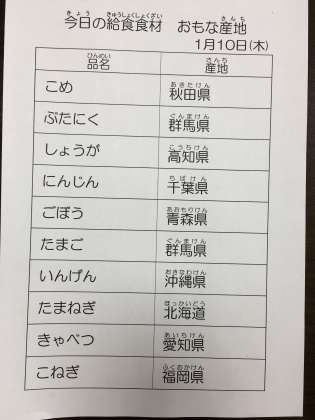 今日の給食食材 おもな産地
1月10日(木)
品名 産地
こめ 秋田県
ぶたにく 群馬県
しょうが 高知県
にんじん 千葉県
ごぼう 青森県
たまご 群馬県
いんげん 沖縄県
たまねぎ 北海道
きゃべつ 愛知県
こねぎ 福岡県